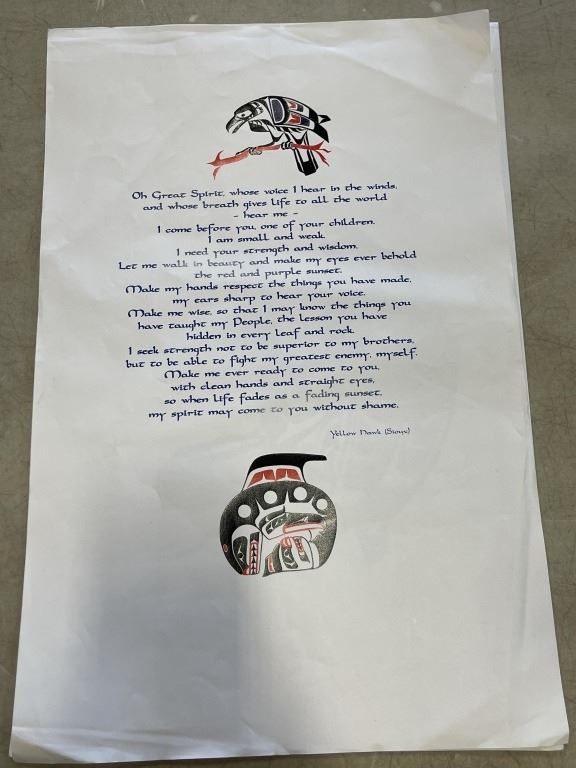 Oh Great Spirit, whose voice I hear in the winds,
and whose breath gives life to all the world
- hear me -
I come before you, one of your children.
I am small and weak.
I need your strength and wisdom.
Let me walk in beauty and make my eyes ever behold
the red and purple sunset.
Make my hands respect the things you have made,
my ears sharp to hear your voice.
Make me wise, so that I may know the things you
have taught my People, the lesson you have
hidden in every leaf and rock.
I seek strength not to be superior to my brothers,
but to be able to fight my greatest enemy, myself.
Make me ever ready to come to you,
with clean hands and straight eyes,
so when life fades as a fading sunset,
my spirit may come to you without shame.
Yellow Hawk (Sioux)